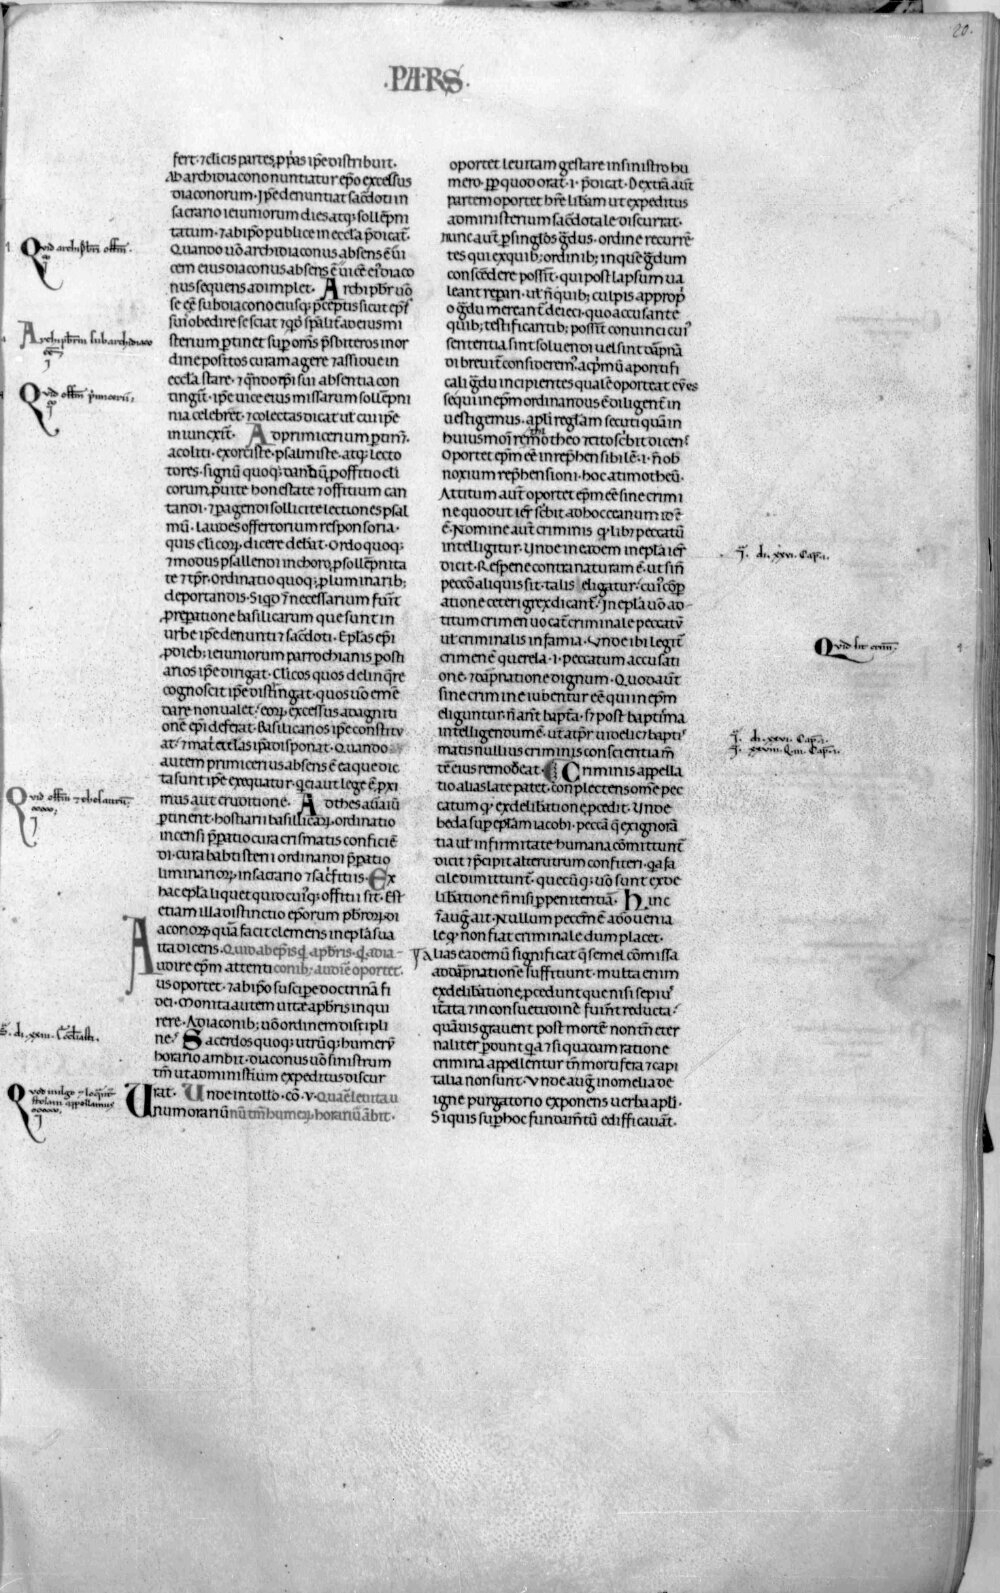 20.
·PARS·
fert· ⁊ cl̄icis partes p̄pas ip̄e distribuit·
Ab archidiacono nuntiatur ep̄o excessus
diaconorum· Ip̄e denuntiat sac̄doti in
sacrario ieiuniorum dies atq; sollēpni
tatum· ⁊ ab ip̄o publice in eccl̄a p̄dicat̄·
Quando u̾o archidiaconus absens ē ui
cem eius diaconus absens ē uicē ei᾽ diaco
nus sequens adimplet· Archip̄br u̾o
se eē sub diacono eiusq; p̄ceptis sicut ep̄i
sui obedire se sciat ⁊ qd̾ sp̄alit̄ ad eius mi
sterium ꝑtinet sup om̄s p̄sbiteros in or
dine positos curam agere ⁊ assidue in
eccl̄a stare· ⁊ qn̄do ep̄i sui absentia con
tingit̄· ip̄e uice eius missarum sollēpni
nia celebret· ⁊ colectas dicat ut̾ cui ip̄e
iniunxit̄· Ad primicerium ꝑtin̄·
acoliti· exorciste· psalmiste· atq; lecto
tores· signū quoq; dandū ꝓ offitio cli
corum ꝓ uite honestate ⁊ offitium can
tandi· ⁊ ꝑagendi sollicite lectiones psal
mū· laudes offertorium responsoria·
quis cl̄icoꝝ dicere debat· Ordo quoq;
⁊ modus psallendi in choro ꝓ sollēpnita
te ⁊ tp̄r· ordinatio quoq; ꝓ luminarib;
deportandis· Siqd ⁊ necessarium fuit̄
ꝓ reparatione basilicarum que sunt in
urbe ip̄e denunti ⁊ sac̄doti· Epl̄as ep̄i
ꝓ dieb; ieiuniorum parrochianis ꝑ osti
arios ip̄e dirigat· Cl̄icos quos delinq̄re
cognoscit ip̄e distingat· quos u̾o emē
dare non ualet· eoꝝ excessus ad agniti
onē ep̄i deferat· Basilicanos ip̄e constitu
at· ⁊ mat̄ eccl̄as ip̄a disponat· Quando
autem primicerius absens ē ea que dic
ta sunt ip̄e exequatur· q̄ ei aut lege ē p̄xi
mus aut eruditione· Ad thesauaiū
ꝑtinent· hostiarii basillicaꝝ· ordinatio
incensi p̄ꝑatio cura crismatis conficiē
di· cura babtisterii ordinandi p̄ꝑatio
liminarioꝝ in sacrario ⁊ sacfitiis· Ex
hac epl̄a liquet quid cui᾽q; offitii sit· Est
etiam illa distinctio ep̄orum pbr̄oꝝ di
aconoꝝ quā facit clemens in epl̄a sua
ita dicens· Quid ab ep̄is qd̾ a pbr̄is· qd̾ a dia-
Audire ep̄m attenti conib; audiē oportet·
us oportet· ⁊ ab ip̄o suscipe doctrinā fi
dei· Monita autem uitæ a pbr̄is inqui
rere· A diaconib; u̾o ordinem discipli
ne· Sacerdos quoq; utrūq; humerū
horario ambit· diaconus u̾o sinistrum
tm̄ ut ad minist̄ium expeditus discur
rat· Unde in tol̄lo· cō· v· Quæ leuita u
Unum orariū nū tm̄ humeꝝ horariū ābit·
oportet leuitam gestare in sinistro hu
mero· ꝓp quod orat· i· p̄dicat· Dextrā aut̄
partem oportet hr̄e lib̄am ut expeditus
ad ministerium sac̄dotale discurrat·
Nunc aut̄ ꝑ singl̾os gd̄us· ordine recurrē
tes qui ex quib; ordinib; in que gd̄um
conscēdere possit̄· qui post lapsum ua
leant repari· ut̾ n̄ quib; culpis a ꝓprop̄
o gd̄u mereant̄ deieci· quo accusante
quib; testificantib; possit̄ conuinci cui᾽
sententia sint soluendi uel sint dāpnā
di breuit̄ consideremꝰ· ac p̄mū a pontifi
cali gd̄u incipientes qualē oporteat eē is
sequi in ep̄m ordinandus ē diligent̄ in
uestigemus· ap̄li reg̾lam secuti quā in
huius moi remotheo ⁊ tito sc̄bit dicens
Oportet ep̄m eē inrep̄hensibilē· i· n̄ ob
noxium rep̄hensioni· hoc ad timotheū·
At titum aut̄ oportet ep̄m eē sine crimi
ne quod ut ier̄ sc̄bit ad hocceanum id ē
ē· Nomine aut̄ criminis q̾libꝫ peccatū
intelligitur· Unde in eadem in epl̄a ier̄
dicit· Res pene contra naturam ē· ut sin̄
peccō aliquis sit· talis eligatur· cui᾽ cōp
atione ceteri grex dicant᾽· In epl̄a u̾o ad
titum crimen uocat̄ criminale peccatū
ut criminalis infamia· Unde ibi legit᾽
crimen ē querela· i· peccatum accusati
one· ⁊ dāpnatione dignum· Quod aut̄
sine crimine iubentur eē qui in ep̄m
eliguntur· n̄ an̄ bapt̄a· sꝫ post baptisma
intelligendum ē· ut a tp̄r uidelicꝫ bapti
matis nullius criminis conscientiam̄
tē eius remodeat· Criminis appella
tio alias late patet· conplectens om̄e pec
catum q᾽ ex delib̾atione ꝓcedit· Unde
beda sup epl̄am iacobi· peccā q̄ ex ignorā
tia ut̾ infirmitate humana cōmittunt̄
dicit p̄cipit alterutrum confiteri· q̾a fa
cile dimittunt᾽· que cūq; u̾o sunt ex de
lib̾atione n̄ nisi ꝑ penitentiā· hinc
⁊ aug̾ ait· Nullum pecc̄m ē adō uenia
le q᾽ non fiat criminale dum placet·
Alias eadem ū significat q̄ semel cōmissa
ad dāpnationē suffitiunt· multa enim
ex delib̾atione ꝓcedunt que nisi sepiu᾽
iterata ⁊ in consuetudinē fuint̄ reducta᾽
quāuis grauent post mortē non tn̄ eter
naliter ꝑdunt q̾a ⁊ si quadam ratione
crimina appellentur tn̄ mortifera ⁊ capi
talia non sunt· Unde aug̾ in omelia de
igne purgatorio exponens uerba apl̄i·
Siquis sup hoc fundam̄tū edifficauat̄·
Quid archipb̄m offm̄·
Archipb̄rm sub archidiaco
Quid offm̄ primicerii;
Quid offm̄ thesaurarii;
S̄· di· xxiii· Ec̄clīast̄i·
Quod uulgo
stolam appellamus
q̄· di· xxvi· Cap̄·i·
Quid sit crim̄·
q̄· di· xxvi· Cap̄·i·
q̄· xxviii· q̄·iii· Cap̄·i·